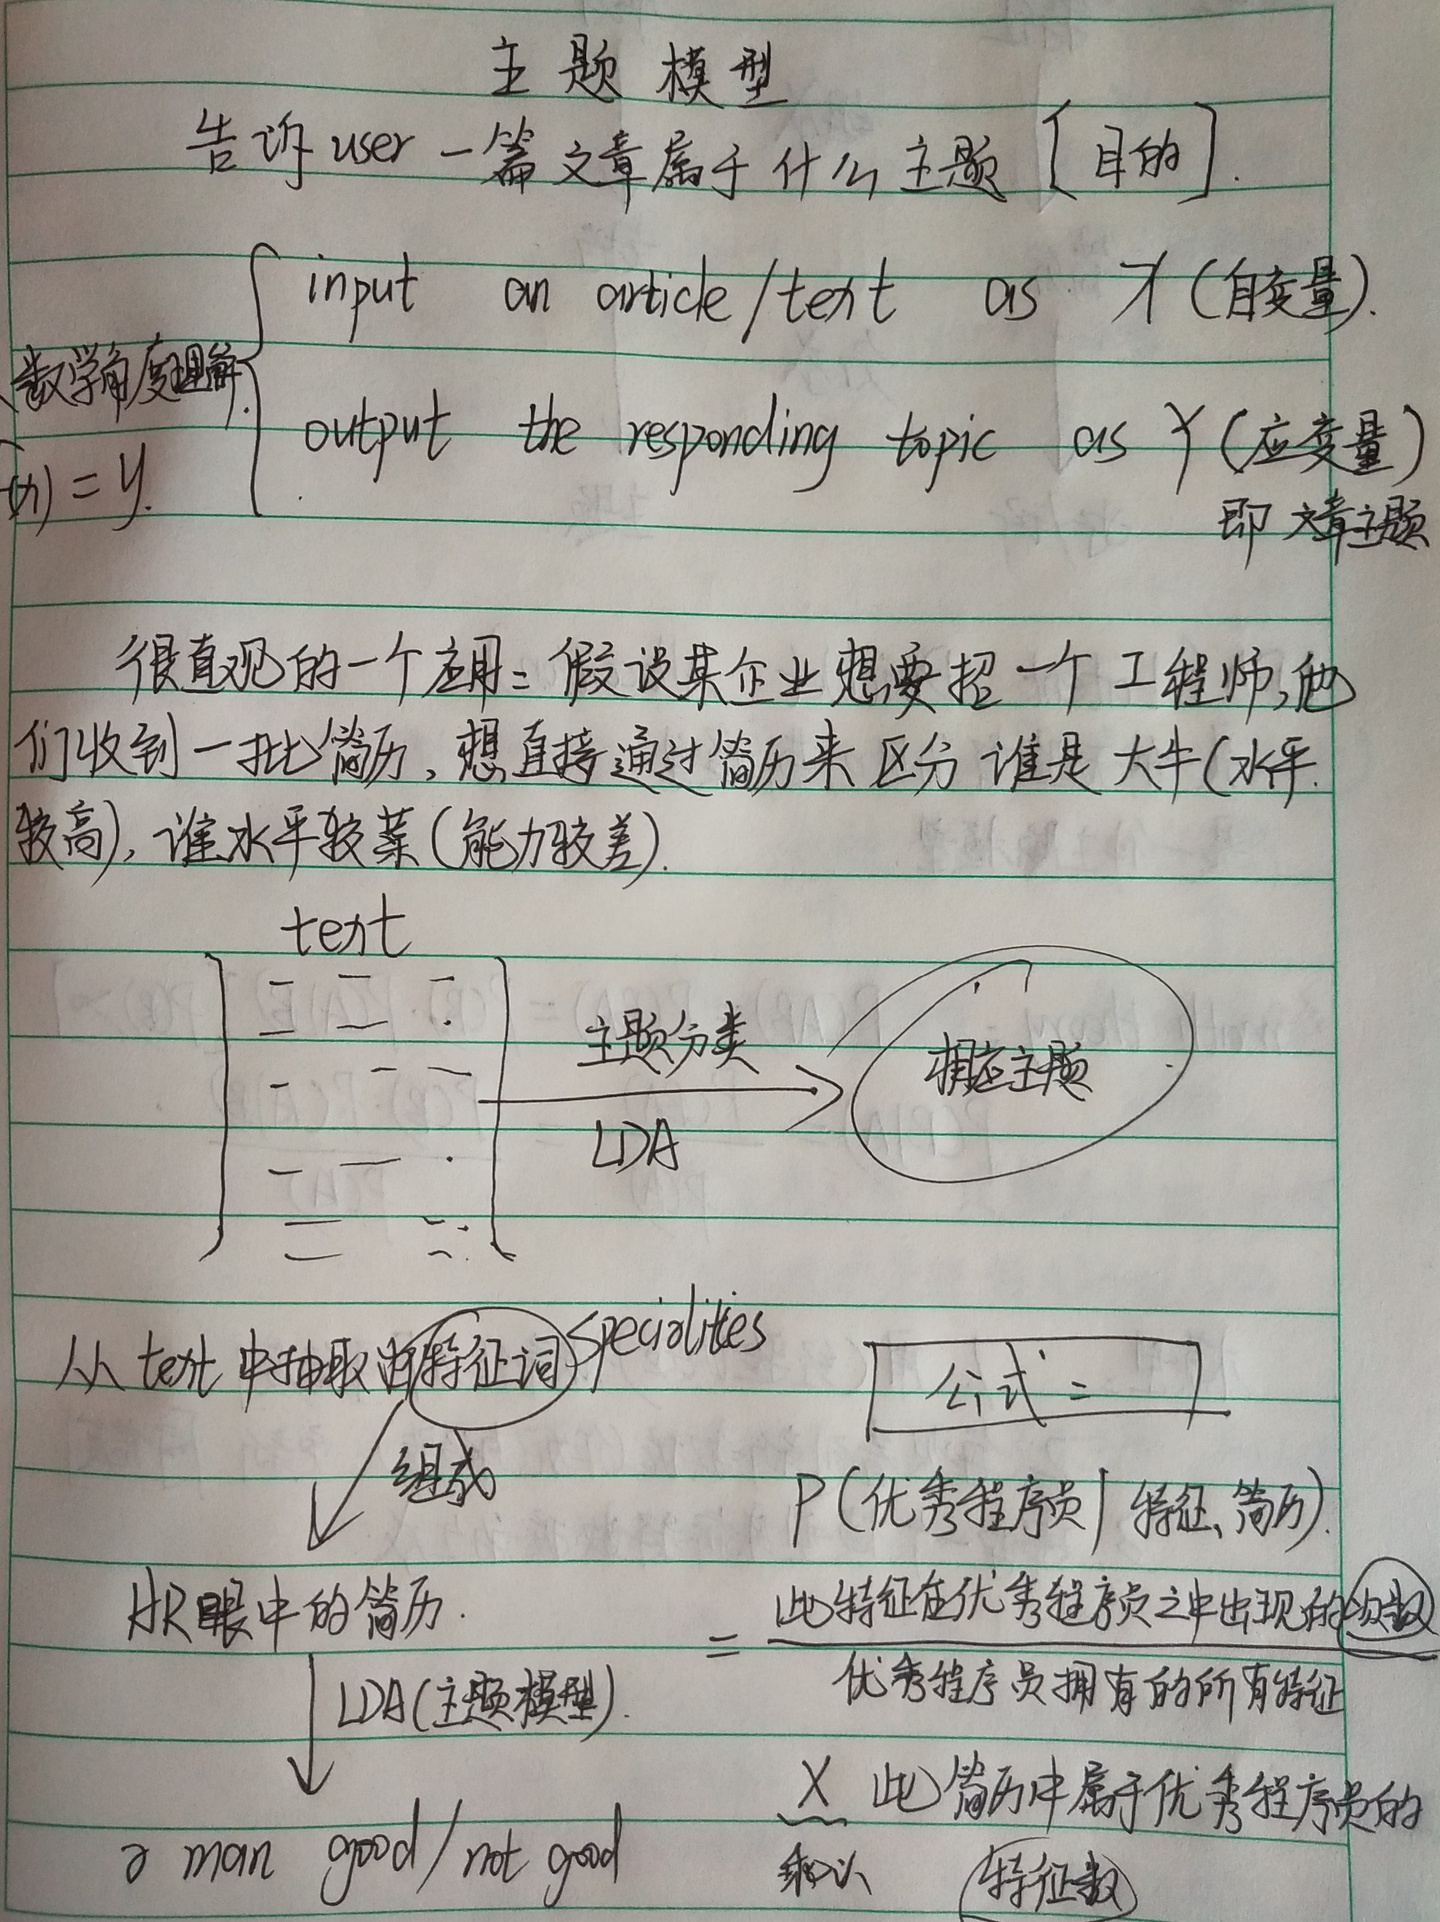 主题模型
告诉user一篇文章属于什么主题 [目的].
input an article/text as X (自变量).
数学角度理解.
output the responding topic as Y (应变量)
(x) = y.
即文章主题
很直观的一个应用: 假设某企业想要招一个工程师,他
们收到一批简历,想直接通过简历来区分谁是大牛(水平
较高),谁水平较菜(能力较差).
text
主题分类
LDA
相应主题
从text中抽取出特征词 specialities
组成
HR眼中的简历.
LDA(主题模型).
a man good/not good
公式:
P(优秀程序员|特征、简历).
= 此特征在优秀程序员之中出现的次数
优秀程序员拥有的所有特征
X 此简历中属于优秀程序员的
乘以 特征数